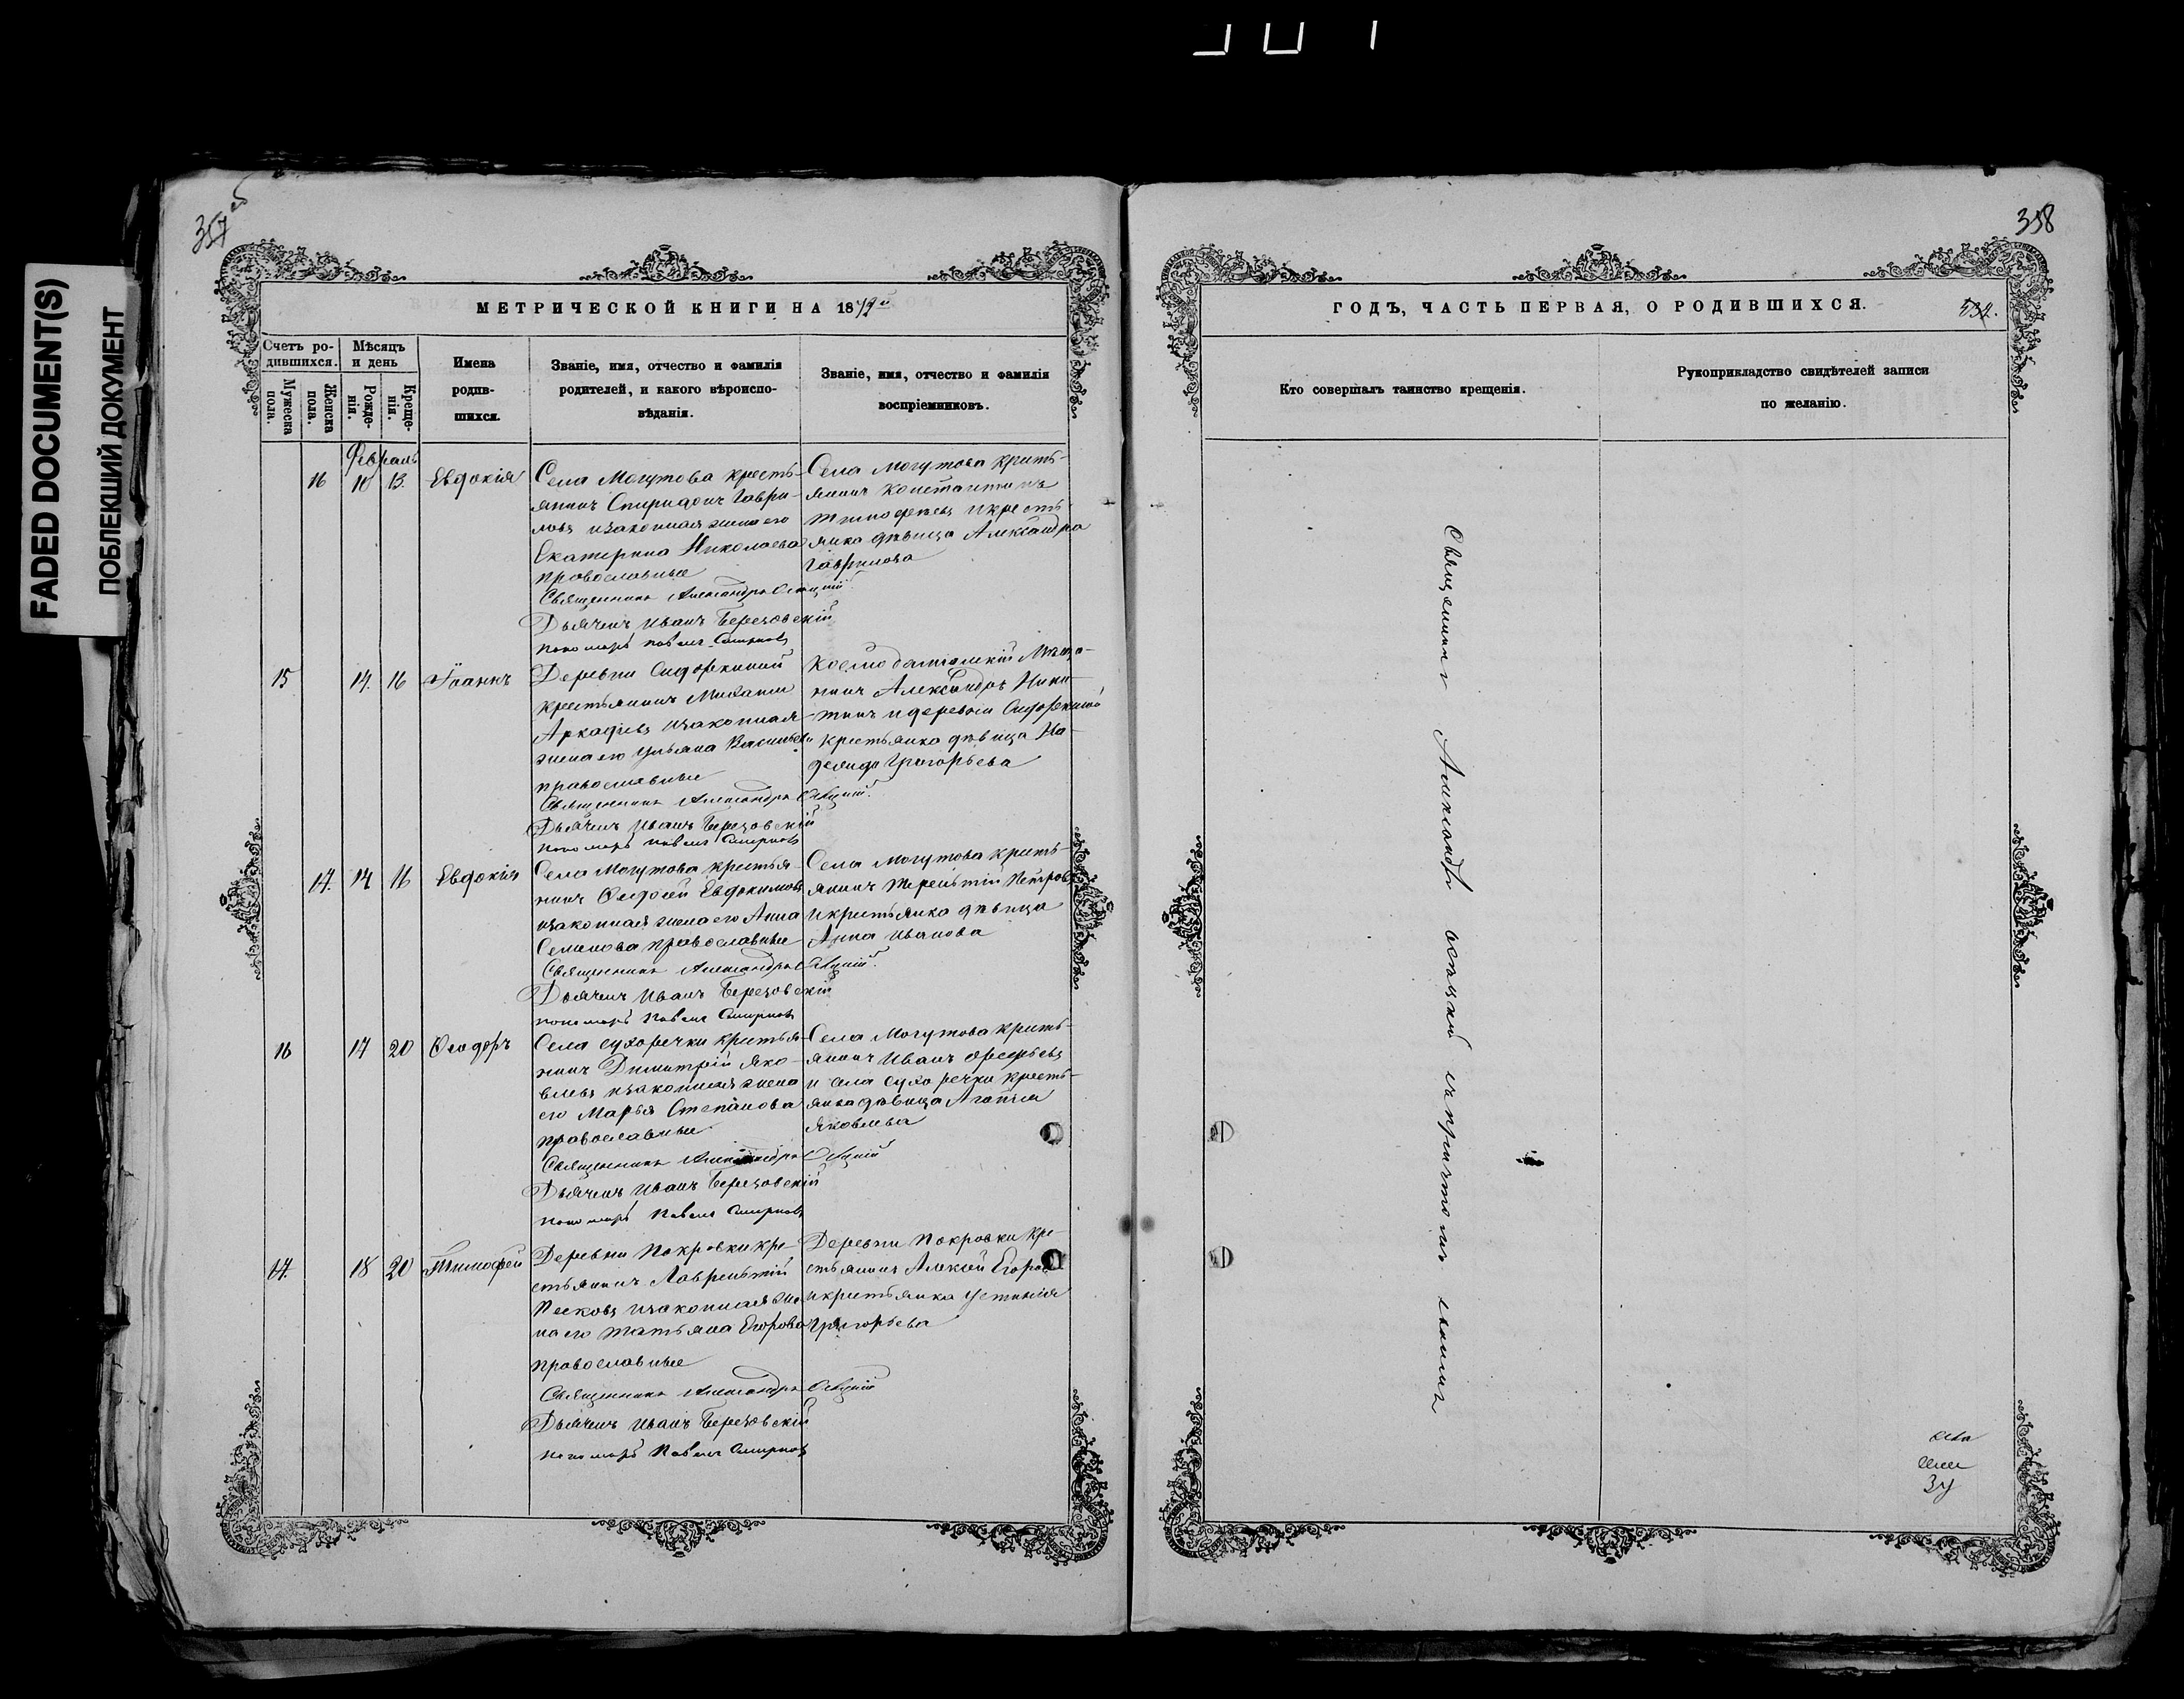 FADED DOCUMENT(S)
ПОБЛЕКШИЙ ДОКУМЕНТ
357 об
МЕТРИЧЕСКОЙ КНИГИ НА 18
Счетъ ро-
дившихся.
Мужеска
пола.
Женска
пола.
Мѣсяцъ
и день
Рожде-
нія.
Креще-
нія.
Имена
родив-
шихся.
Званіе, имя, отчество и фамилія
родителей, и какого вѣроиспо-
вѣданія.
Званіе, имя, отчество и фамилія
воспріемниковъ.
Февраль
16 10 13. Евдокія
Села Могутова кресть-
янинъ Спиридонъ Гаври-
ловъ изаконная жена его
Екатерина Николаева
православные
Священникъ Александръ
Дьячекъ Иванъ Березовскій
пономарь Павелъ Смирновъ
Села Могутова кресть-
янинъ Константинъ
Тимофеевъ икресть-
янка дѣвица Александра
Гаврилова
15 14. 16 Іоаннъ
Деревни Сидоркиной
крестьянинъ Михаилъ
Аркадьевъ изаконная
жена его Ульяна Васильева
православные
Священникъ Александръ
Дьячекъ Иванъ Березовскій
пономарь Павелъ Смирновъ
Мѣща-
нинъ Александръ Ники-
тинъ и деревни Сидоркиной
крестьянка дѣвица На-
дежда Григорьева
17. 14 16 Евдокія
Села Могутова крестья-
нинъ Евдокимовъ
изаконная жена его Анна
Семенова православные
Священникъ Александръ
Дьячекъ Иванъ Березовскій
пономарь Павелъ Смирновъ
Села Могутова кресть-
янинъ Терентій Петровъ
икрестьянка дѣвица
Анна Иванова
16 17 20 Ѳеодоръ
Села Сухоречки крестья-
нинъ Димитрій Яко-
влевъ изаконная жена
его Марья Степанова
православные
Священникъ Александръ
Дьячекъ Иванъ Березовскій
пономарь Павелъ Смирновъ
Села Могутова кресть-
янинъ Иванъ Арефьевъ
и села Сухоречки кресть-
янка дѣвица Агапія
Яковлева
17. 18 20 Тимофей
Деревни Покровки кре-
стьянинъ Лаврентій
Песковъ изаконная же-
на его Татьяна Егорова
православные
Священникъ Александръ
Дьячекъ Иванъ Березовскій
пономарь Павелъ Смирновъ
Деревни Покровки кре-
стьянинъ Алексѣй Егоровъ
икрестьянка Устинія
Григорьева
358
ГОДЪ, ЧАСТЬ ПЕРВАЯ, О РОДИВШИХСЯ.
532.
Кто совершалъ таинство крещенія.
Рукоприкладство свидѣтелей записи
по желанію.
Священникъ Александръ съ причтомъ своимъ